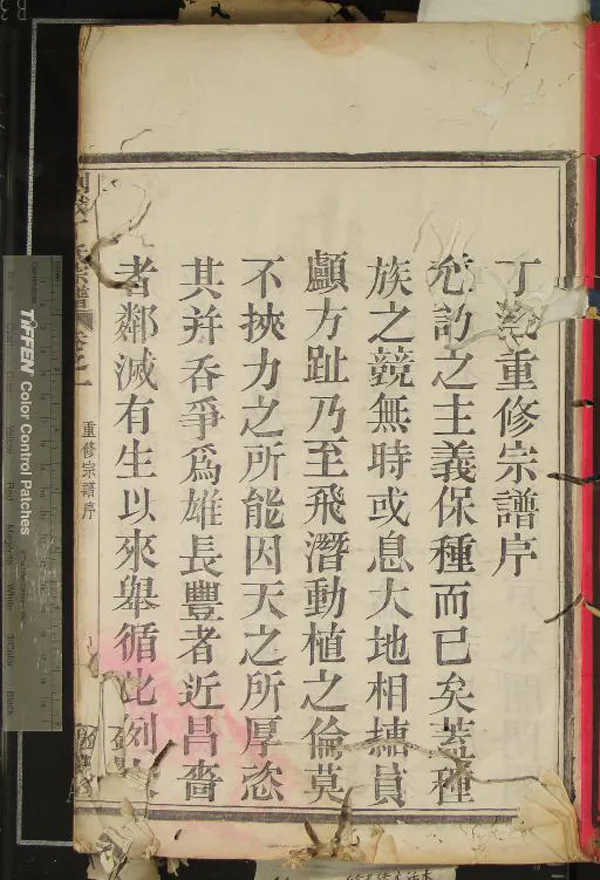 丁 重修宗譜序
之主義保種而已矣蓋種
族之競無時或息大地相 員
顱方趾乃至飛潛動植之倫莫
不挾力之所能因天之所厚恣
其并吞爭爲雄長豐者近昌嗇
者鄰滅有生以來舉循此例
宗譜
重修宗譜序
TIFFEN Color Control Patches